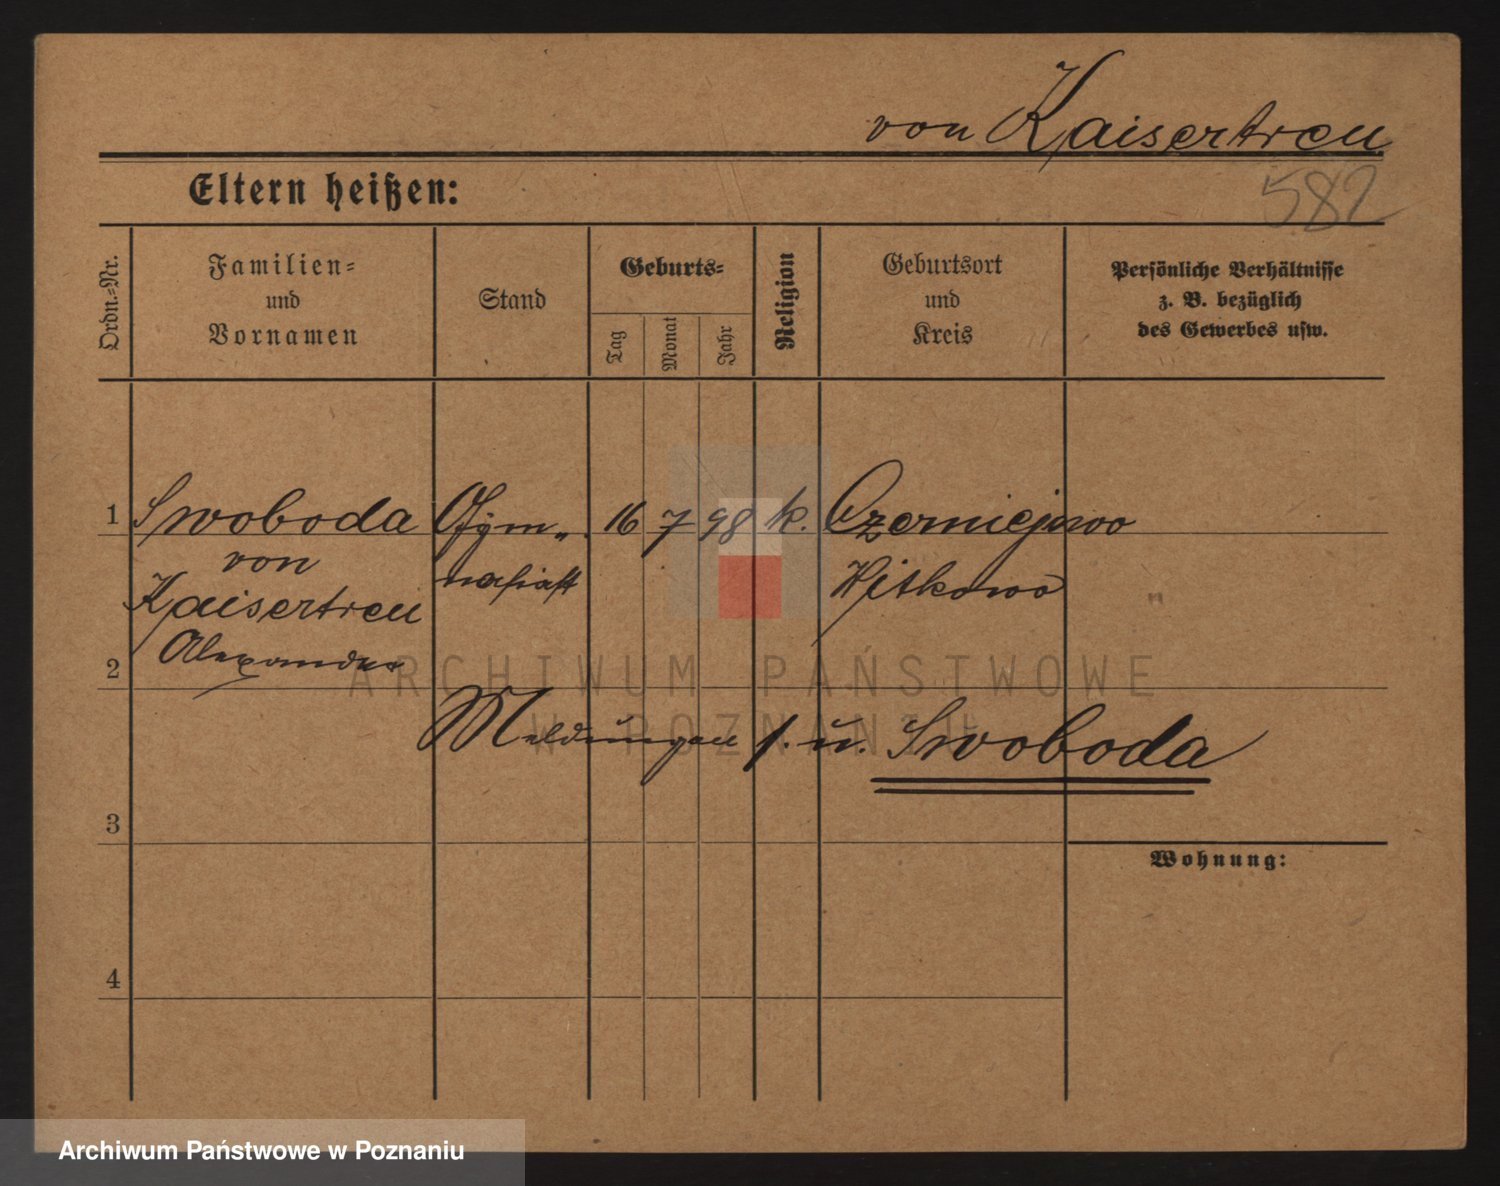 von Kaisertreu
Eltern heißen:
582
Ordn.-Nr.
Familien-
und
Vornamen
Stand
Geburts-
Tag
Monat
Jahr
Religion
Geburtsort
und
Kreis
Persönliche Verhältnisse
z. B. bezüglich
des Gewerbes usw.
1 Swoboda Gym„ 16 7 98 k. Czerniejewo
von
Kaisertreu
Alexander
nasiast
Witkowo
2
ARCHIWUM PAŃSTWOWE
W POZNANIU
Meldungen s. u. Swoboda
3
Wohnung:
4
Archiwum Państwowe w Poznaniu